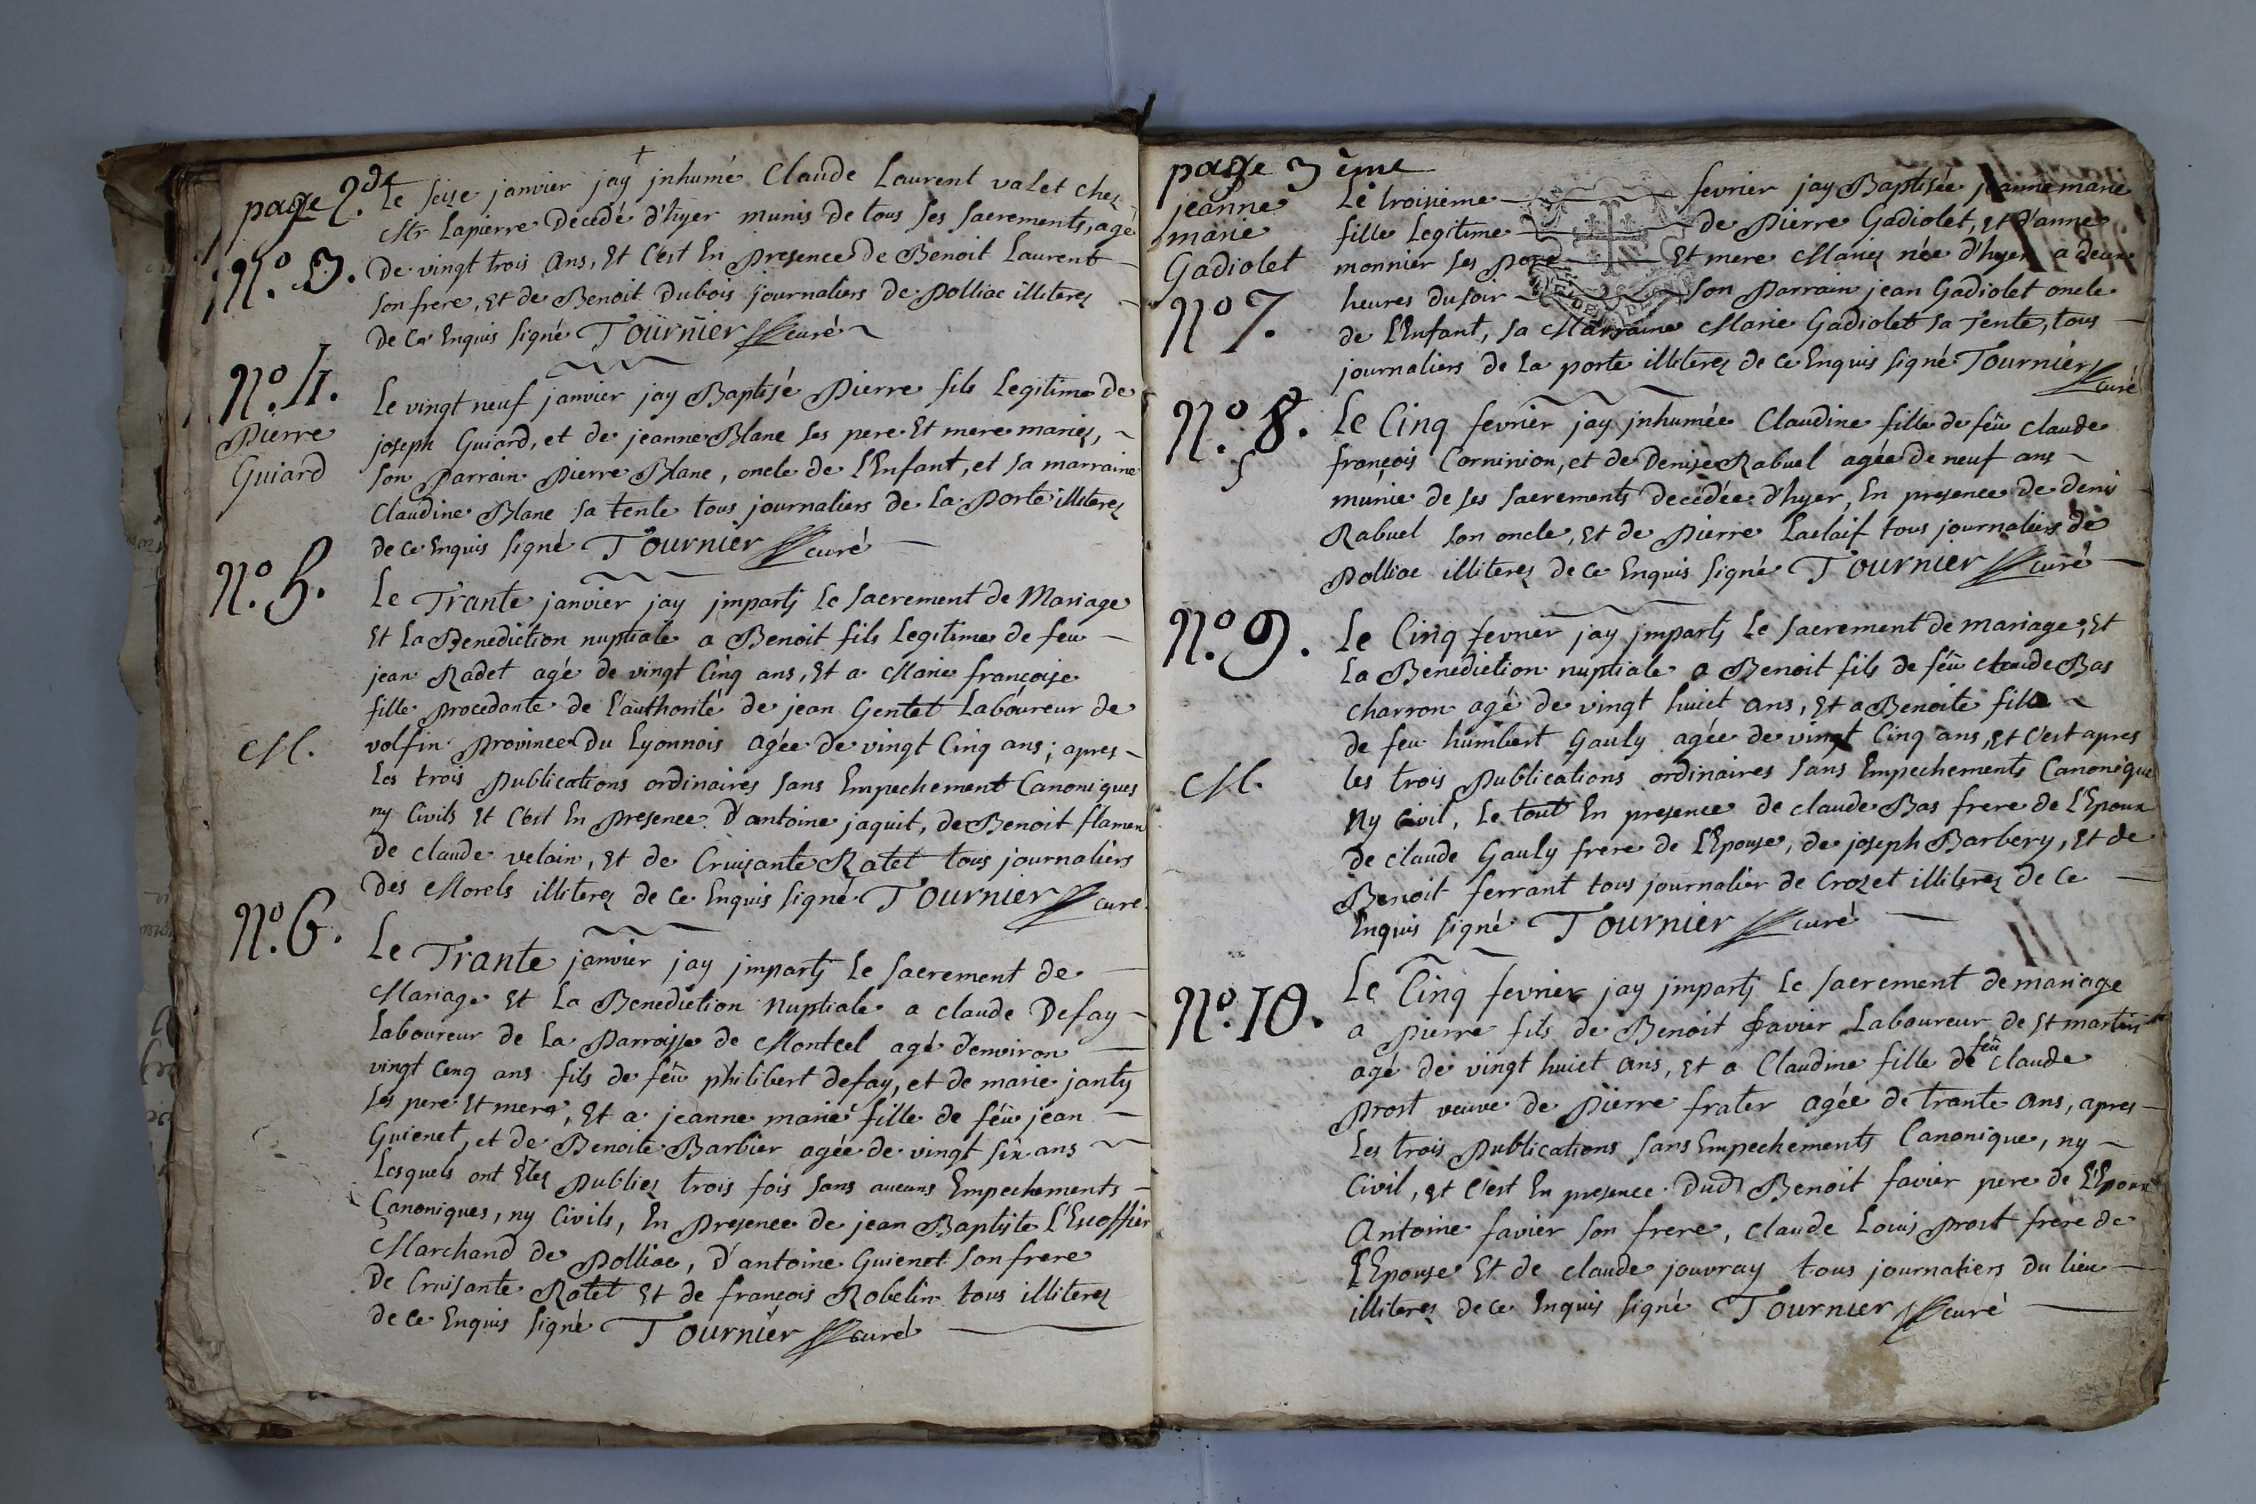 page 2.de
+
Le seize janvier jay jnhumé Claude Laurent valet chez
Mr Lapierre Decedé d'hyer munis de tous ses sacrements, agé
N.o 3. De vingt trois ans, Et C'est En presence De Benoit Laurent
son frere, Et de Benoit Dubois journaliers de polliac illiterez
De Ce Enquis signé Tournier curé
N.o 4. Le vingt neuf janvier jay Baptisé Pierre fils Legitime de
Pierre joseph Guiard, et de jeanne Blanc ses pere Et mere mariez,
Guiard son Parrain Pierre Blanc, oncle de l'Enfant, et sa marraine
Claudine Blanc sa tente tous journaliers de La Porte illiterez
de Ce Enquis signé Tournier curé
N.o 5. Le Trante janvier jay jmparty Le sacrement de Mariage
Et La Benediction nuptiale a Benoit fils Legitime de feu
jean Radet agé de vingt Cinq ans, Et a Marie françoise
fille procedante de l'authorité de jean Gentet Laboureur de
M. volfin province du Lyonnois agée de vingt Cinq ans; apres
Les trois publications ordinaires sans Empechement Canoniques
ny Civils Et C'est En presence D'antoine jaquit, de Benoit flamen
De claude velain, Et de Cruisante Ratet tous journaliers
Des Morels illiterez de Ce Enquis signé Tournier curé
N.o 6. Le Trante janvier jay jmparty Le sacrement de
Mariage Et La Benediction Nuptiale a claude Defay
Laboureur de La Parroisse de Montcel agé d'environ
vingt Cenq ans fils de feû philibert defay, et de marie janty
ses pere Et mere, Et a jeanne marie fille de feû jean
Guienet, et de Benoite Barbier agée de vingt six ans
Lesquels ont Etez publiez trois fois sans aucuns Empechements
Canoniques, ny Civils, En presence de jean Baptiste L'Escoffier
Marchand de polliac, D'antoine Guienet son frere
De Cruisante Ratet Et de françois Robelin tous illiterez
de Ce Enquis signé Tournier curé
page 3 ème
jeanne Le troisieme fevrier jay Baptisée jeanne marie
marie fille Legitime de Pierre Gadiolet, Et d'anne
Gadiolet monnier ses pere Et mere Mariez née d'hyer a deux
N.o 7. heures du soir son Parrain jean Gadiolet oncle
de l'Enfant, sa Marraine Marie Gadiolet sa Tente, tous
journaliers de La porte illiterez de Ce Enquis signé Tournier curé
N.o 8. Le Cinq fevrier jay jnhumée Claudine fille de feû claude
s françois Corninion, et de Denise Rabuel agée de neuf ans
munie de ses sacrements decédée d'hyer, En presence de deni
Rabuel son oncle, Et de Pierre Laclaif tous journaliers de
Polliac illiterez de Ce Enquis signé Tournier curé
N.o 9. Le Cinq fevrier jay jmparty Le sacrement de mariage, Et
La Benediction nuptiale a Benoit fils de feû claude Bas
charron agé de vingt huict ans, Et a Benoite fille
de feu humbert Gauly agée de vingt Cinq ans, Et C'est apres
M. les trois publications ordinaires sans Empechements Canonique
Ny Civil, Le tout En presence de claude Bas frere de l'Epoux
De claude Gauly frere de l'Epouse, de joseph Barbery, Et de
Benoit ferrant tous journalier de Crozet illiterez de Ce
Enquis signé Tournier curé
N.o 10. Le Cinq fevrier jay jmparty Le sacrement de mariage
a Pierre fils de Benoit favier Laboureur de St martin
agé de vingt huict ans, Et a Claudine fille de feû claude
Prost veuve de Pierre frater agée de trante ans, apres
Les trois publications sans Empechements Canonique, ny
Civil, Et C'est En presence Dud Benoit favier pere de l'Epoux
Antoine favier son frere, claude Louis prost frere de
l'Epouse Et de claude jouvray tous journaliers du lieu
illiterez de Ce Enquis signé Tournier curé